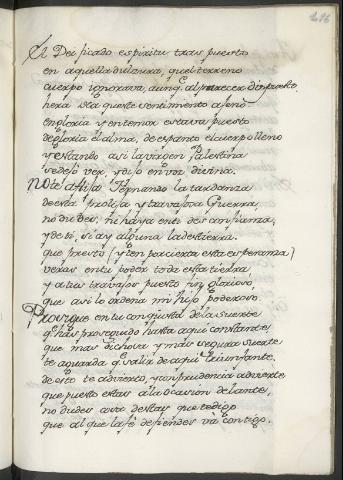 286
El Deificado espiritu traspuesto
en aquella dulzura, que el terreno
cuerpo ignorava, aunq. al parecer dispuesto,
hera
en gloria y en temor estava puesto
de gloria el alma, de espanto el cuerpo lleno
y estando asi la virgen Palestina
se dejó ver, y dijo en voz divina.
No te aflija Fernando la tardanza
de esta prolija y travajosa Guerra,
no dudes, ni haya en ti desconfianza,
y de ti, si ay alguna la destierra.
que presto (y ten por cierta esta esperanza)
veras en tu poder toda esta tierra
y a tus travajos puesto fin glorioso,
que asi lo ordena mi hijo poderoso.
Prosigue en tu conquista de la suerte
q. has proseguido hasta aqui constante,
que mas dichosa y mas segura suerte
te aguarda q. salir de aqui triunfante.
de esto te advierto, y con prudencia advierte
que puesto estas a la ocasion delante,
no dudes cosa de estas que te digo
que al que la fé defiendes va contigo.